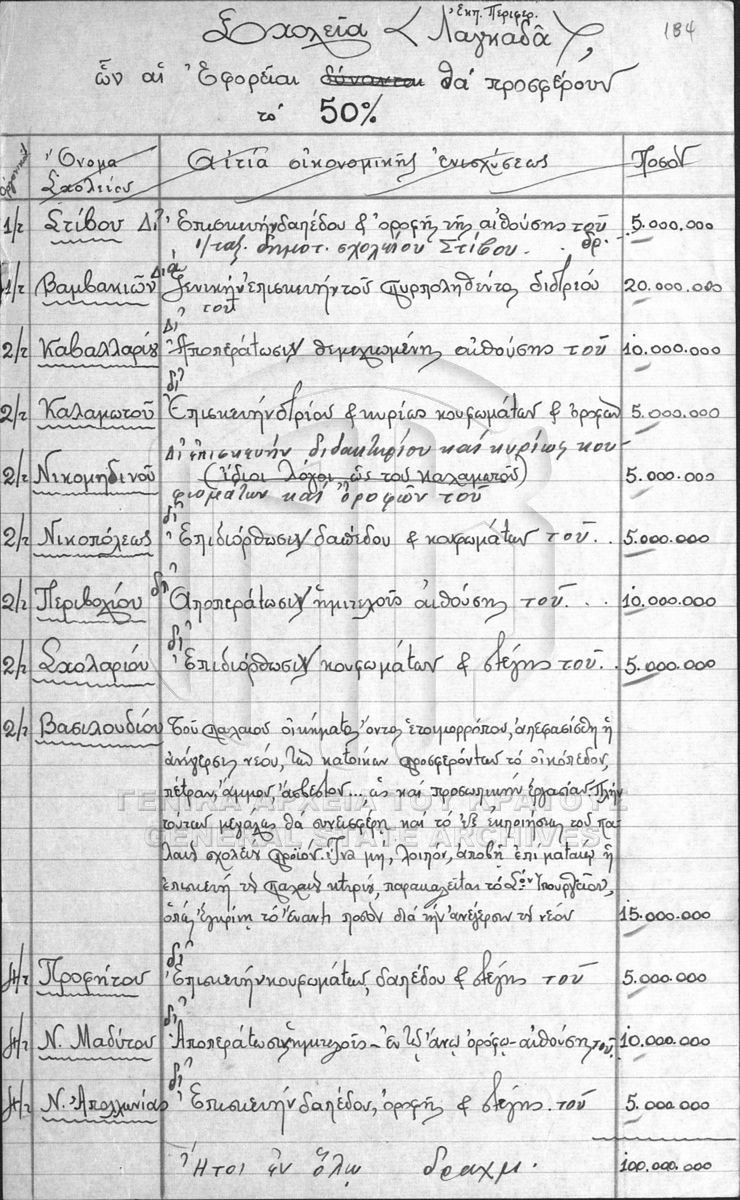 184
Ἐκπ. Περιφερ.
Σχολεῖα Λαγκαδᾶ,
ὧν αἱ Ἐφορεῖαι δύνανται θά προσφέρουν
τό 50%
Ὀργανικ. Ὄνομα Σχολείου Αἰτία οἰκονομικῆς ἐνισχύσεως Ποσόν
1/τ Στίβου Δι' Ἐπισκευήν δαπέδου & ὀροφῆς τῆς αἰθούσης τοῦ 5.000.000
1/ταξ. δημοτ. σχολείου Στίβου. δρ.
1/τ Βαμβακιῶν Διά Γενικήν ἐπισκευήν τοῦ πυρποληθέντος διδ)ρίου 20.000.000
τοῦ
2/τ Καβαλλαρίου Δι' Ἀποπεράτωσιν θεμελιωμένης αἰθούσης τοῦ 10.000.000
2/τ Καλαμωτοῦ δι' Ἐπισκευήν δ)ρίου & κυρίως κουφωμάτων & ὀροφῶν 5.000.000
Δι' ἐπισκευήν διδακτηρίου καί κυρίως κου-
2/τ Νικομηδινοῦ (ἴδιοι λόγοι ὡς τοῦ Καλαμωτοῦ) 5.000.000
φωμάτων καί ὀροφῶν τοῦ
2/τ Νικοπόλεως δι' Ἐπιδιόρθωσιν δαπέδου & κουφωμάτων τοῦ.. 5.000.000
2/τ Περιβολίου δι' Ἀποπεράτωσιν ἡμιτελοῦς αἰθούσης τοῦ... 10.000.000
2/τ Σχολαρίου δι' Ἐπιδιόρθωσιν κουφωμάτων & στέγης τοῦ.. 5.000.000
2/τ Βασιλουδίου Τοῦ παλαιοῦ οἰκήματος ὄντος ἑτοιμορρόπου, ἀπεφασίσθη ἡ
ἀνέγερσις νέου, τῶν κατοίκων προσφερόντων τό οἰκόπεδον,
πέτραν, ἄμμον, ἀσβέστον... ὡς καί προσωπικήν ἐργασίαν. Πλήν
τούτων μεγάλως θά συνεισφέρῃ καί τό ἐξ ἐκποιήσεως τοῦ πα-
λαιοῦ σχολείου προϊόν. Ἵνα μή, λοιπόν, ἀποβῇ ἐπί ματαίῳ ἡ
ἐπισκευή τοῦ παλαιοῦ κτιρίου, παρακαλεῖται τό Σ)τόν Ὑπουργεῖον,
ὅπως ἐγκρίνῃ τό ἔναντι ποσόν διά τήν ἀνέγερσιν τοῦ νέου 15.000.000
Προφήτου δι' Ἐπισκευήν κουφωμάτων, δαπέδου & στέγης τοῦ 5.000.000
Ν. Μαδύτου δι' Ἀποπεράτωσιν ἡμιτελοῦς - ἐν τῷ ἄνω ὀρόφῳ - αἰθούσης τοῦ 10.000.000
Ν. Ἀπολλωνίας δι' Ἐπισκευήν δαπέδου, ὀροφῆς & στέγης τοῦ 5.000.000
Ἤτοι ἐν ὅλῳ δραχμ. 100.000.000
ΓΕΝΙΚΑ ΑΡΧΕΙΑ ΤΟΥ ΚΡΑΤΟΥΣ
GENERAL STATE ARCHIVES